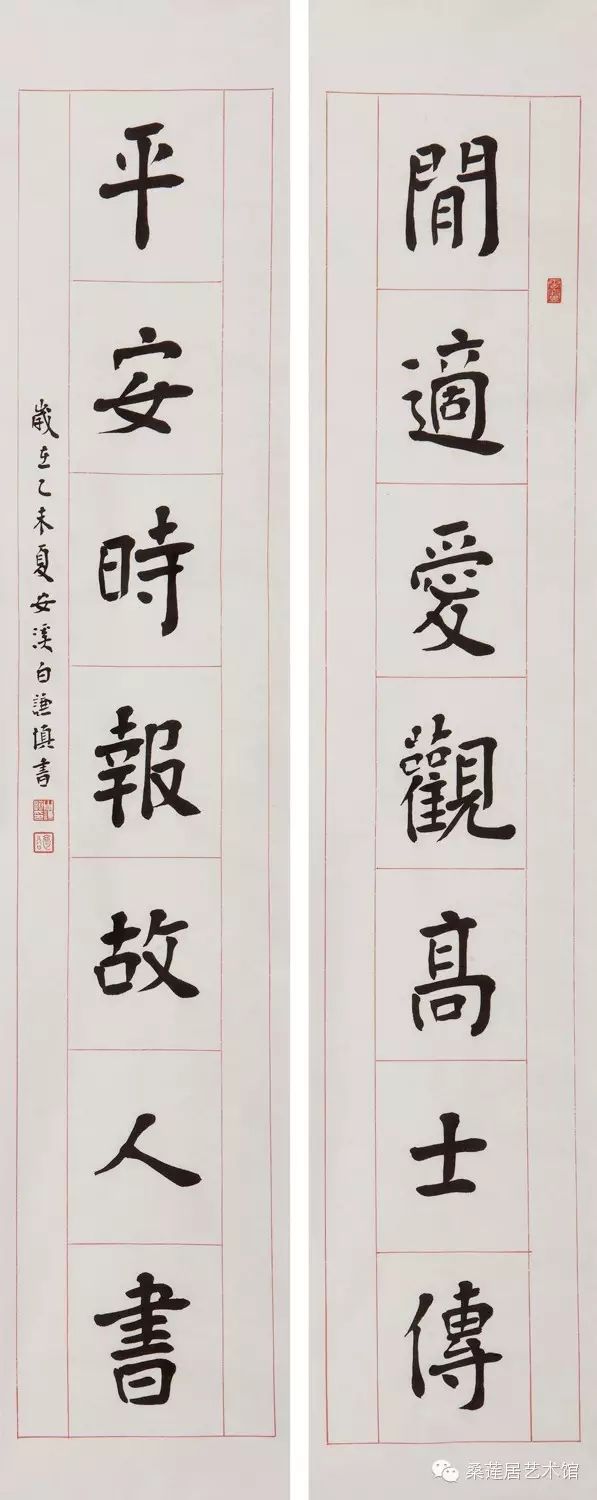 閒適愛觀高士傳
平安時報故人書
歲在乙未夏安溪白謙慎書
桑莲居艺术馆